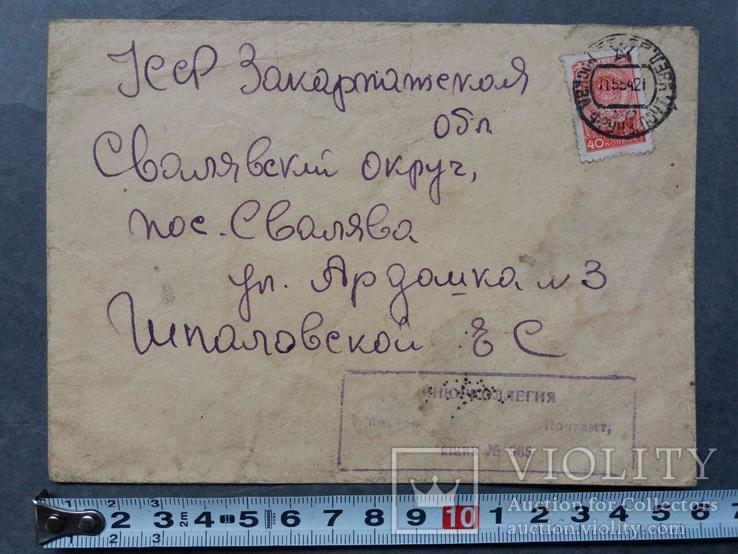 УССР Закарпатская
обл
Свалявский округ,
пос. Свалява
ул. Ардашка № 3
Шпаловской Е С
40 КОПЕЕК
ИНЮРКОЛЛЕГИЯ
Почтамт,
ящик № 865
VIOLITY
Auction for Collectors
auction.violity.com
1 2 3
2 3 2m 4 5 6 7 8 9 10 1 2 3 4 5 6 7